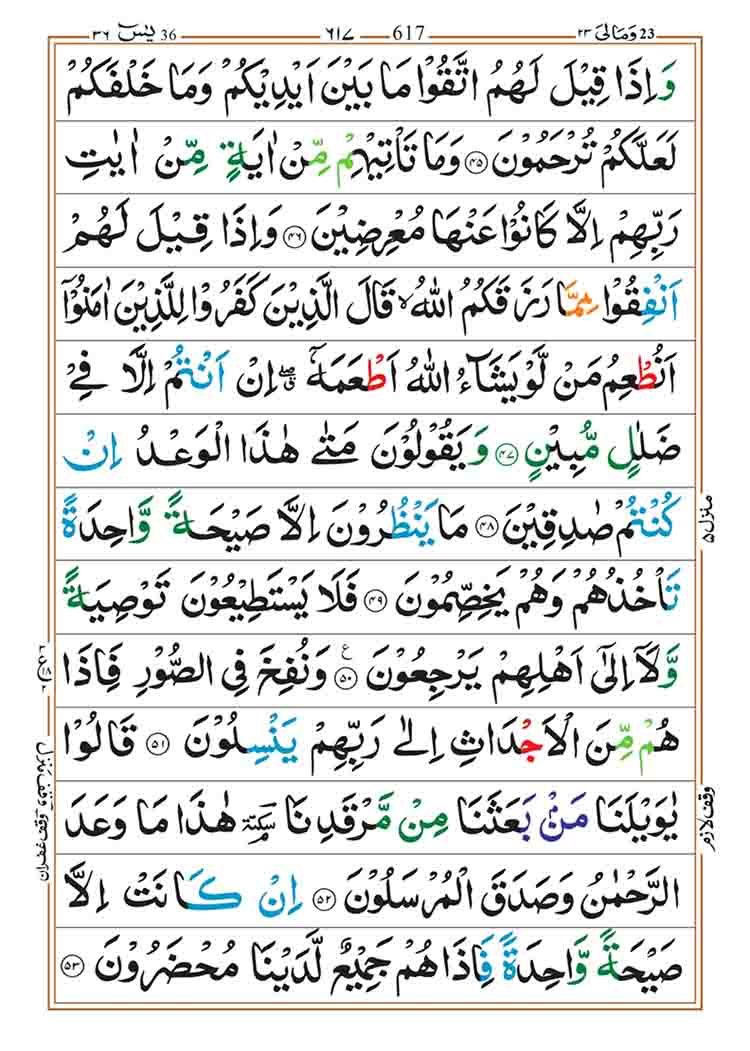 يٰسٓ 36 ٣٦ 617 ٦١٧ وَمَا لِىَ 23 ٢٣
وَاِذَا قِيْلَ لَهُمُ اتَّقُوْا مَا بَيْنَ اَيْدِيْكُمْ وَمَا خَلْفَكُمْ
لَعَلَّكُمْ تُرْحَمُوْنَ ﴿۴۵﴾ وَمَا تَاْتِيْهِمْ مِّنْ اٰيَةٍ مِّنْ اٰيٰتِ
رَبِّهِمْ اِلَّا كَانُوْا عَنْهَا مُعْرِضِيْنَ ﴿۴۶﴾ وَاِذَا قِيْلَ لَهُمْ
اَنْفِقُوْا مِمَّا رَزَقَكُمُ اللّٰهُ ۙ قَالَ الَّذِيْنَ كَفَرُوْا لِلَّذِيْنَ اٰمَنُوْۤا
اَنُطْعِمُ مَنْ لَّوْ يَشَآءُ اللّٰهُ اَطْعَمَهٗۤ ۖ ۗ اِنْ اَنْتُمْ اِلَّا فِىْ
ضَلٰلٍ مُّبِيْنٍ ﴿۴۷﴾ وَيَقُوْلُوْنَ مَتٰى هٰذَا الْوَعْدُ اِنْ
كُنْتُمْ صٰدِقِيْنَ ﴿۴۸﴾ مَا يَنْظُرُوْنَ اِلَّا صَيْحَةً وَّاحِدَةً
تَاْخُذُهُمْ وَهُمْ يَخِصِّمُوْنَ ﴿۴۹﴾ فَلَا يَسْتَطِيْعُوْنَ تَوْصِيَةً
وَّلَاۤ اِلٰٓى اَهْلِهِمْ يَرْجِعُوْنَ ﴿۵۰﴾ ع وَنُفِخَ فِى الصُّوْرِ فَاِذَا
هُمْ مِّنَ الْاَجْدَاثِ اِلٰى رَبِّهِمْ يَنْسِلُوْنَ ﴿۵۱﴾ قَالُوْا
يٰوَيْلَنَا مَنْۢ بَعَثَنَا مِنْ مَّرْقَدِنَا ؔۘ سكتة هٰذَا مَا وَعَدَ
الرَّحْمٰنُ وَصَدَقَ الْمُرْسَلُوْنَ ﴿۵۲﴾ اِنْ كَانَتْ اِلَّا
صَيْحَةً وَّاحِدَةً فَاِذَا هُمْ جَمِيْعٌ لَّدَيْنَا مُحْضَرُوْنَ ﴿۵۳﴾
منزل ۵
وقف لازم
وقف غفران